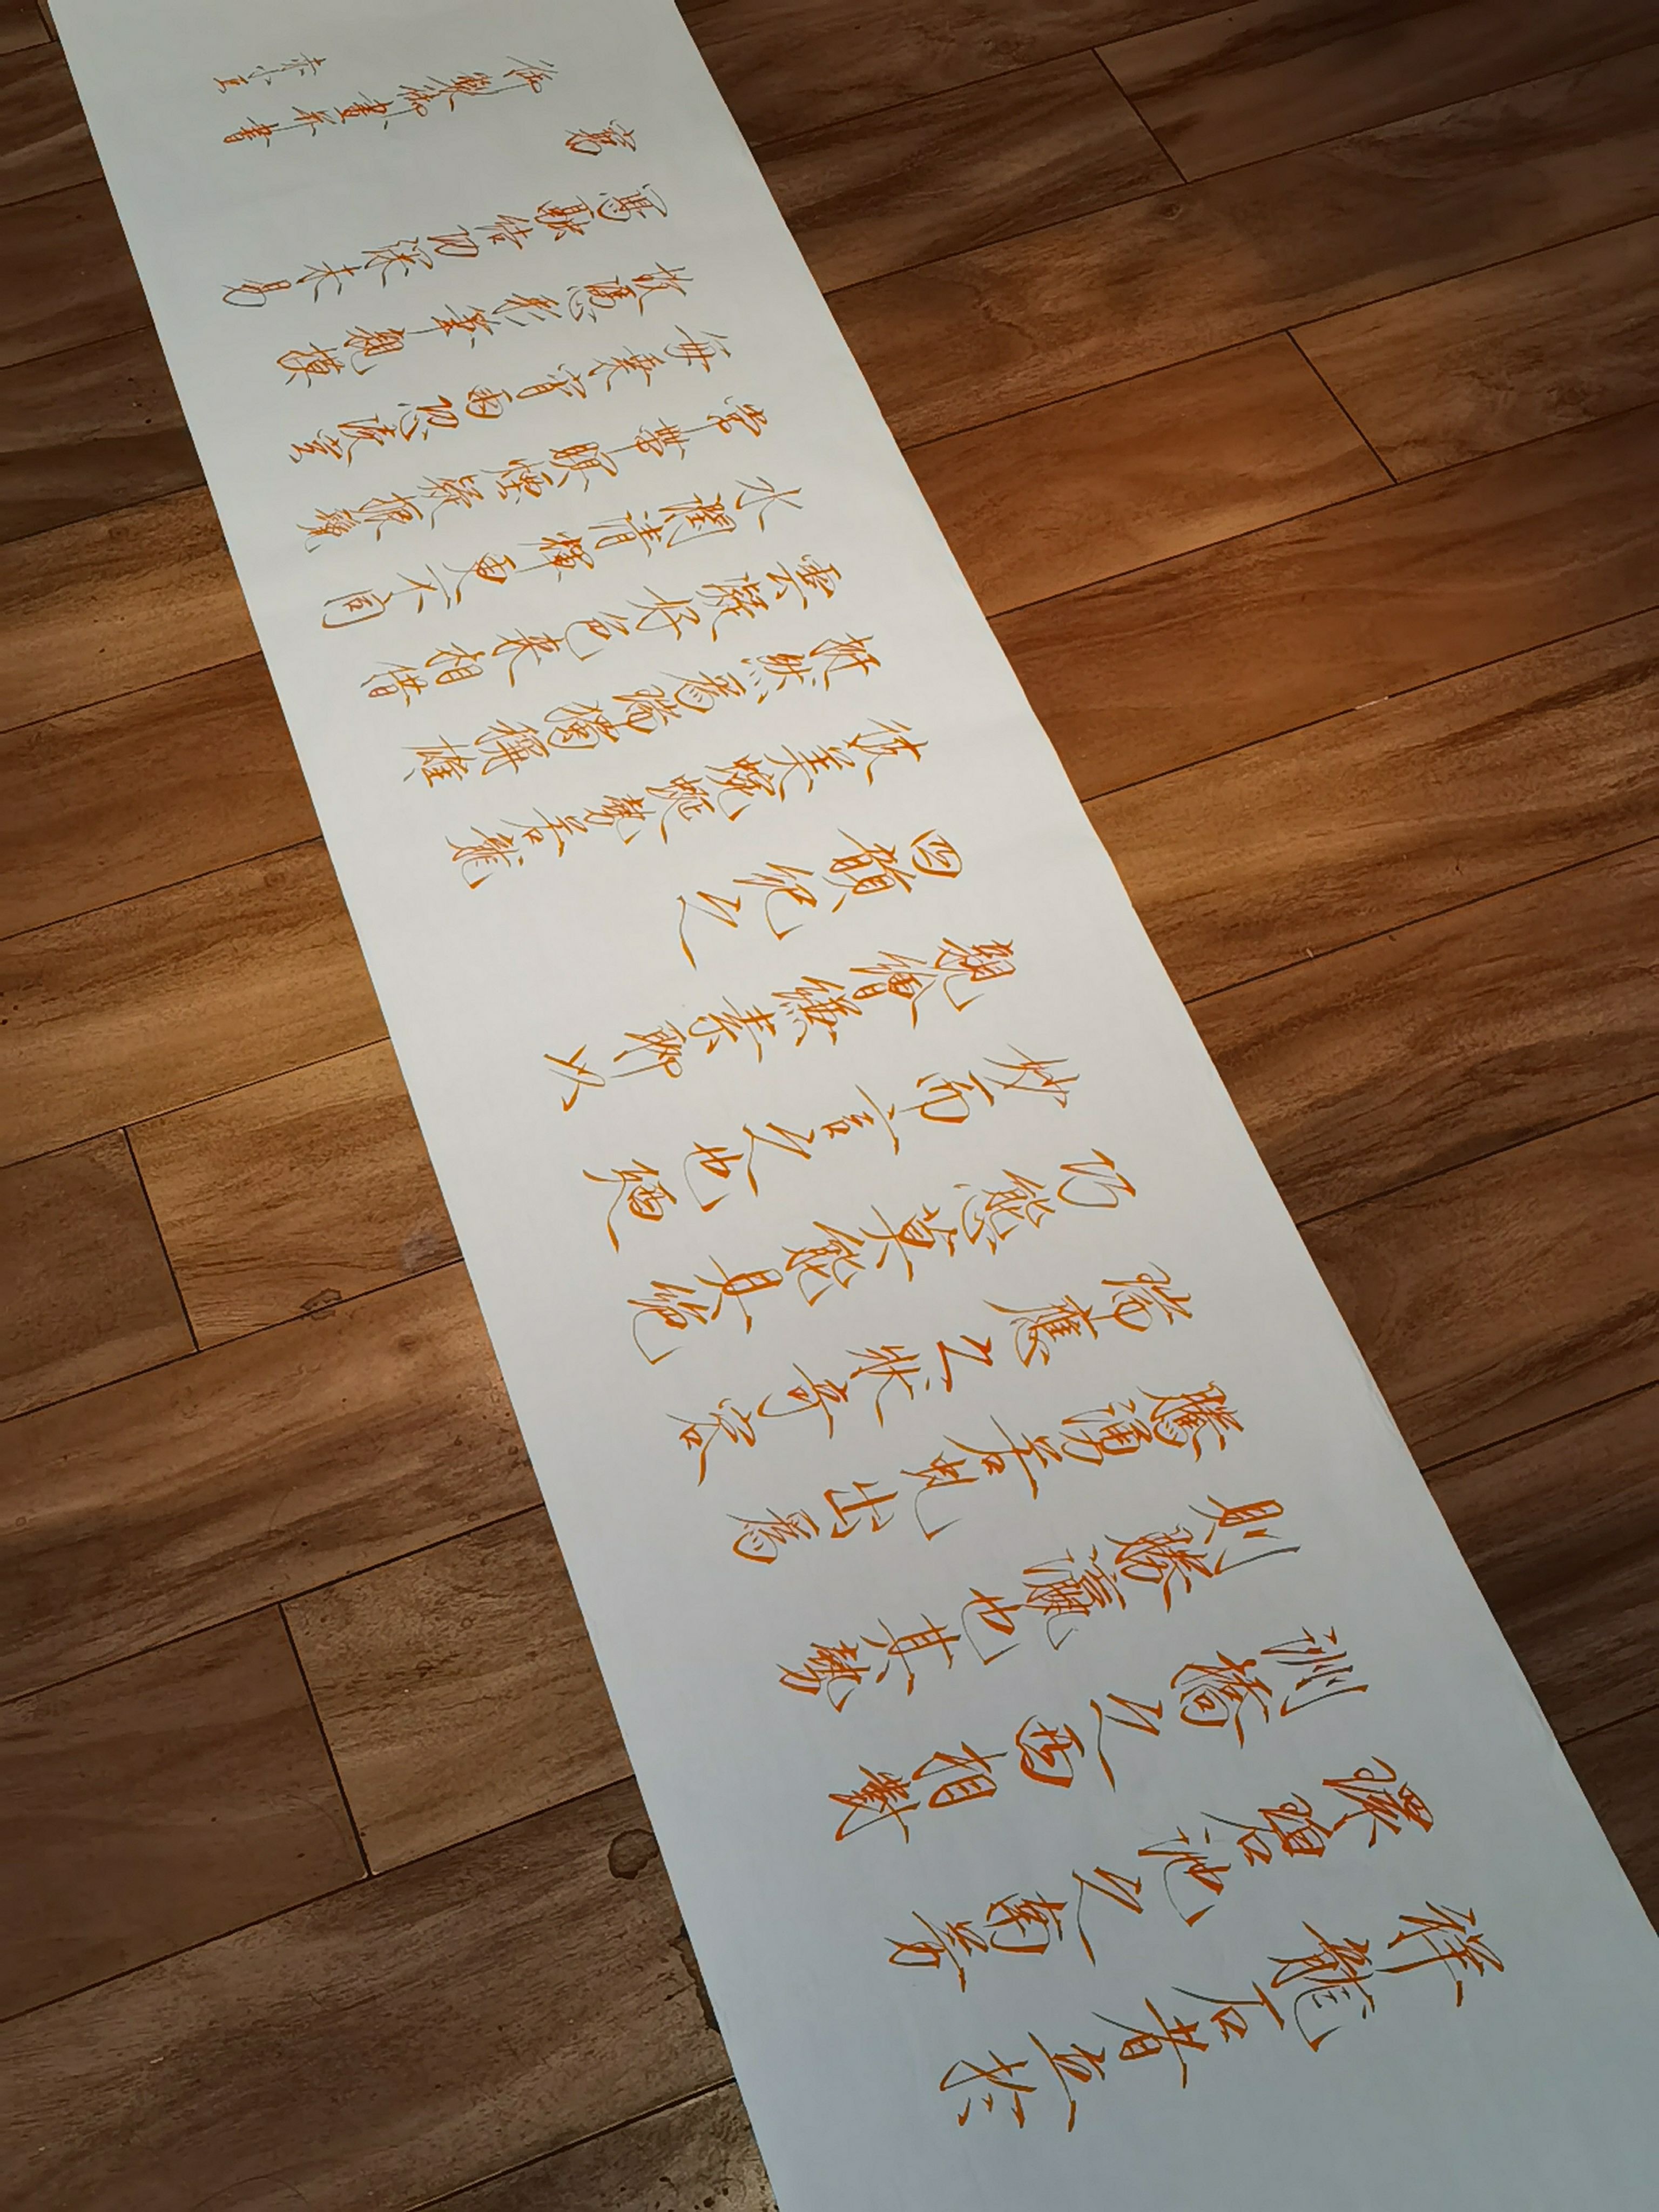 祥龍石者立於
環碧池之南芳
洲橋之西相對
則勝瀛也其勢
騰湧若虬出爲
瑞應之狀奇容
巧態莫能具絕
妙而言之也廼
親繪縑素聊以
四韻紀之
彼美蜿蜒勢若龍
挺然爲瑞獨稱雄
雲凝好色來相借
水潤清輝更不同
常帶暝煙疑振鬣
每乘宵雨恐凌空
故憑彩筆親模
寫融結功深未易
窮
御製御畫並書